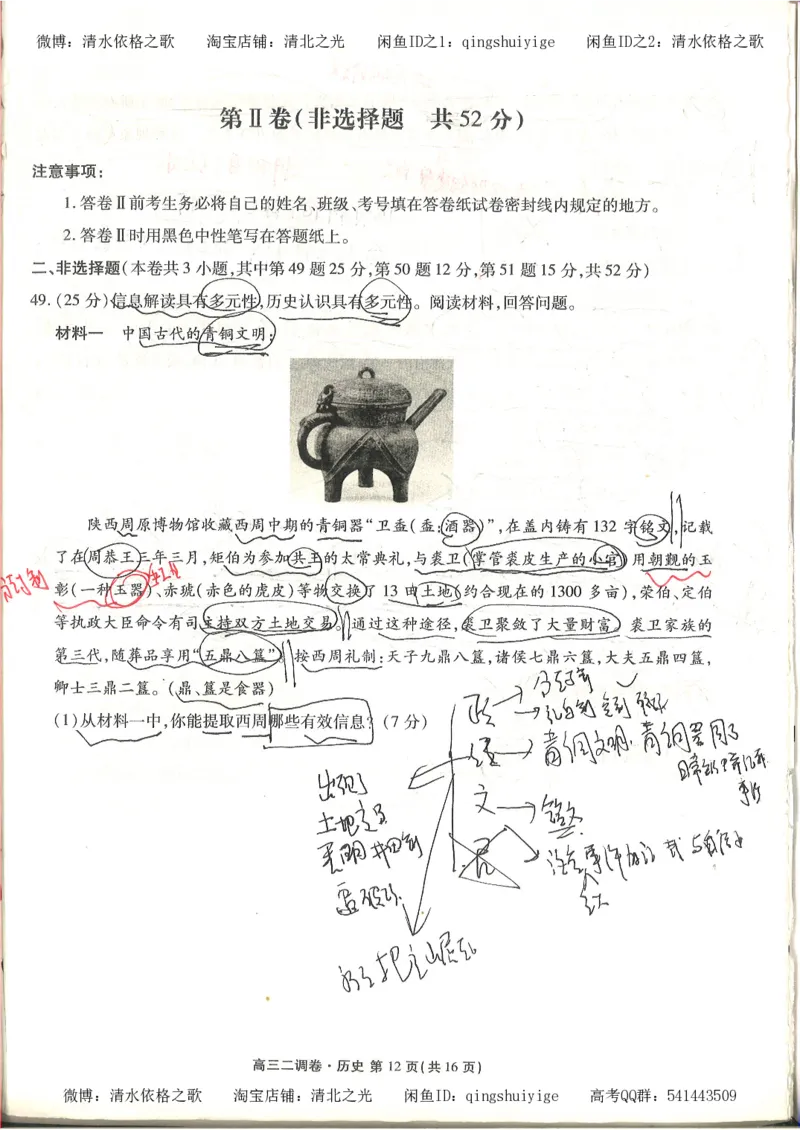 微博：清水依格之歌 淘宝店铺：清北之光 闲鱼ID之1：qingshuiyige 闲鱼ID之2：清水依格之歌
第Ⅱ卷(非选择题 共52分)
注意事项：
1.答卷Ⅱ前考生务必将自己的姓名、班级、考号填在答卷纸试卷密封线内规定的地方。
2.答卷Ⅱ时用黑色中性笔写在答题纸上。
二、非选择题(本卷共3小题,其中第49题25分,第50题12分,第51题15分,共52分)
49.(25分)信息解读具有多元性,历史认识具有多元性。阅读材料,回答问题。
材料一 中国古代的青铜文明：
陕西周原博物馆收藏西周中期的青铜器“卫盉(盉:酒器)”,在盖内铸有132字铭文,记载
了在周恭王三年三月,矩伯为参加共王的太常典礼,与裘卫(掌管裘皮生产的小官)用朝觐的玉
彰(一种玉器)、赤琥(赤色的虎皮)等物交换了13田土地(约合现在的1300多亩),荣伯、定伯
等执政大臣命令有司主持双方土地交易。通过这种途径,裘卫聚敛了大量财富。裘卫家族的
第三代,随葬品享用“五鼎八簋”。按西周礼制:天子九鼎八簋,诸侯七鼎六簋,大夫五鼎四簋,
卿士三鼎二簋。(鼎、簋是食器)
(1)从材料一中,你能提取西周哪些有效信息？(7分)
政
经
青铜文明
文
出现了
土地交易
井田制
高三二调卷·历史 第12页(共16页)
微博：清水依格之歌 淘宝店铺：清北之光 闲鱼ID：qingshuiyige 高考QQ群：541443509